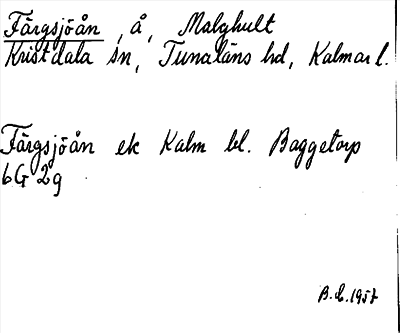 Färgsjöån, å, Malghult
Kristdala sn, Tunaläns hd, Kalmar l.
Färgsjöån ek Kalm bl. Baggetorp
6G 2g
B.L. 1957